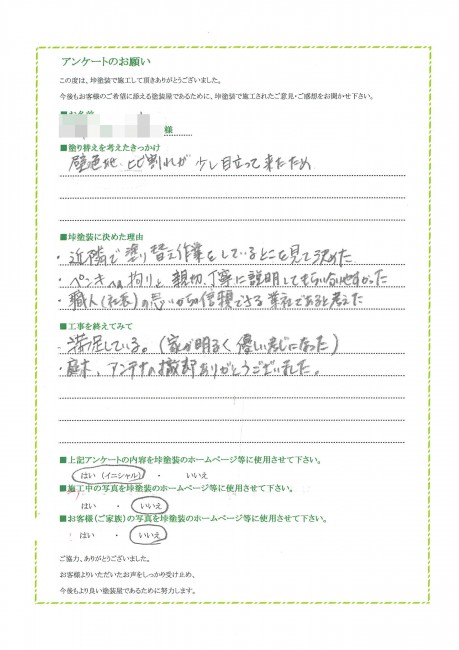 アンケートのお願い
この度は、垰塗装で施工して頂きありがとうございました。
今後もお客様のご希望に添える塗装屋であるために、垰塗装で施工されたご意見・ご感想をお聞かせ下さい。
■お名前
様
■塗り替えを考えたきっかけ
壁色地、ヒビ割れが少し目立って来たため
■垰塗装に決めた理由
・近隣で塗り替え作業をしているとこを見て決めた
・ペンキへの拘りと親切、丁寧に説明してもらい分かりやすかった
・職人(社長)の思いから信頼できる業社であると考えた
■工事を終えてみて
・満足している。(家が明るく優しい感じになった)
・庭木、アンテナの撤却ありがとうございました。
■上記アンケートの内容を垰塗装のホームページ等に使用させて下さい。
はい (イニシャル) ・ いいえ
■施工中の写真を垰塗装のホームページ等に使用させて下さい。
はい ・ いいえ
■お客様(ご家族)の写真を垰塗装のホームページ等に使用させて下さい。
はい ・ いいえ
ご協力、ありがとうございました。
お客様よりいただいたお声をしっかり受け止め、
今後もより良い塗装屋であるために努力します。